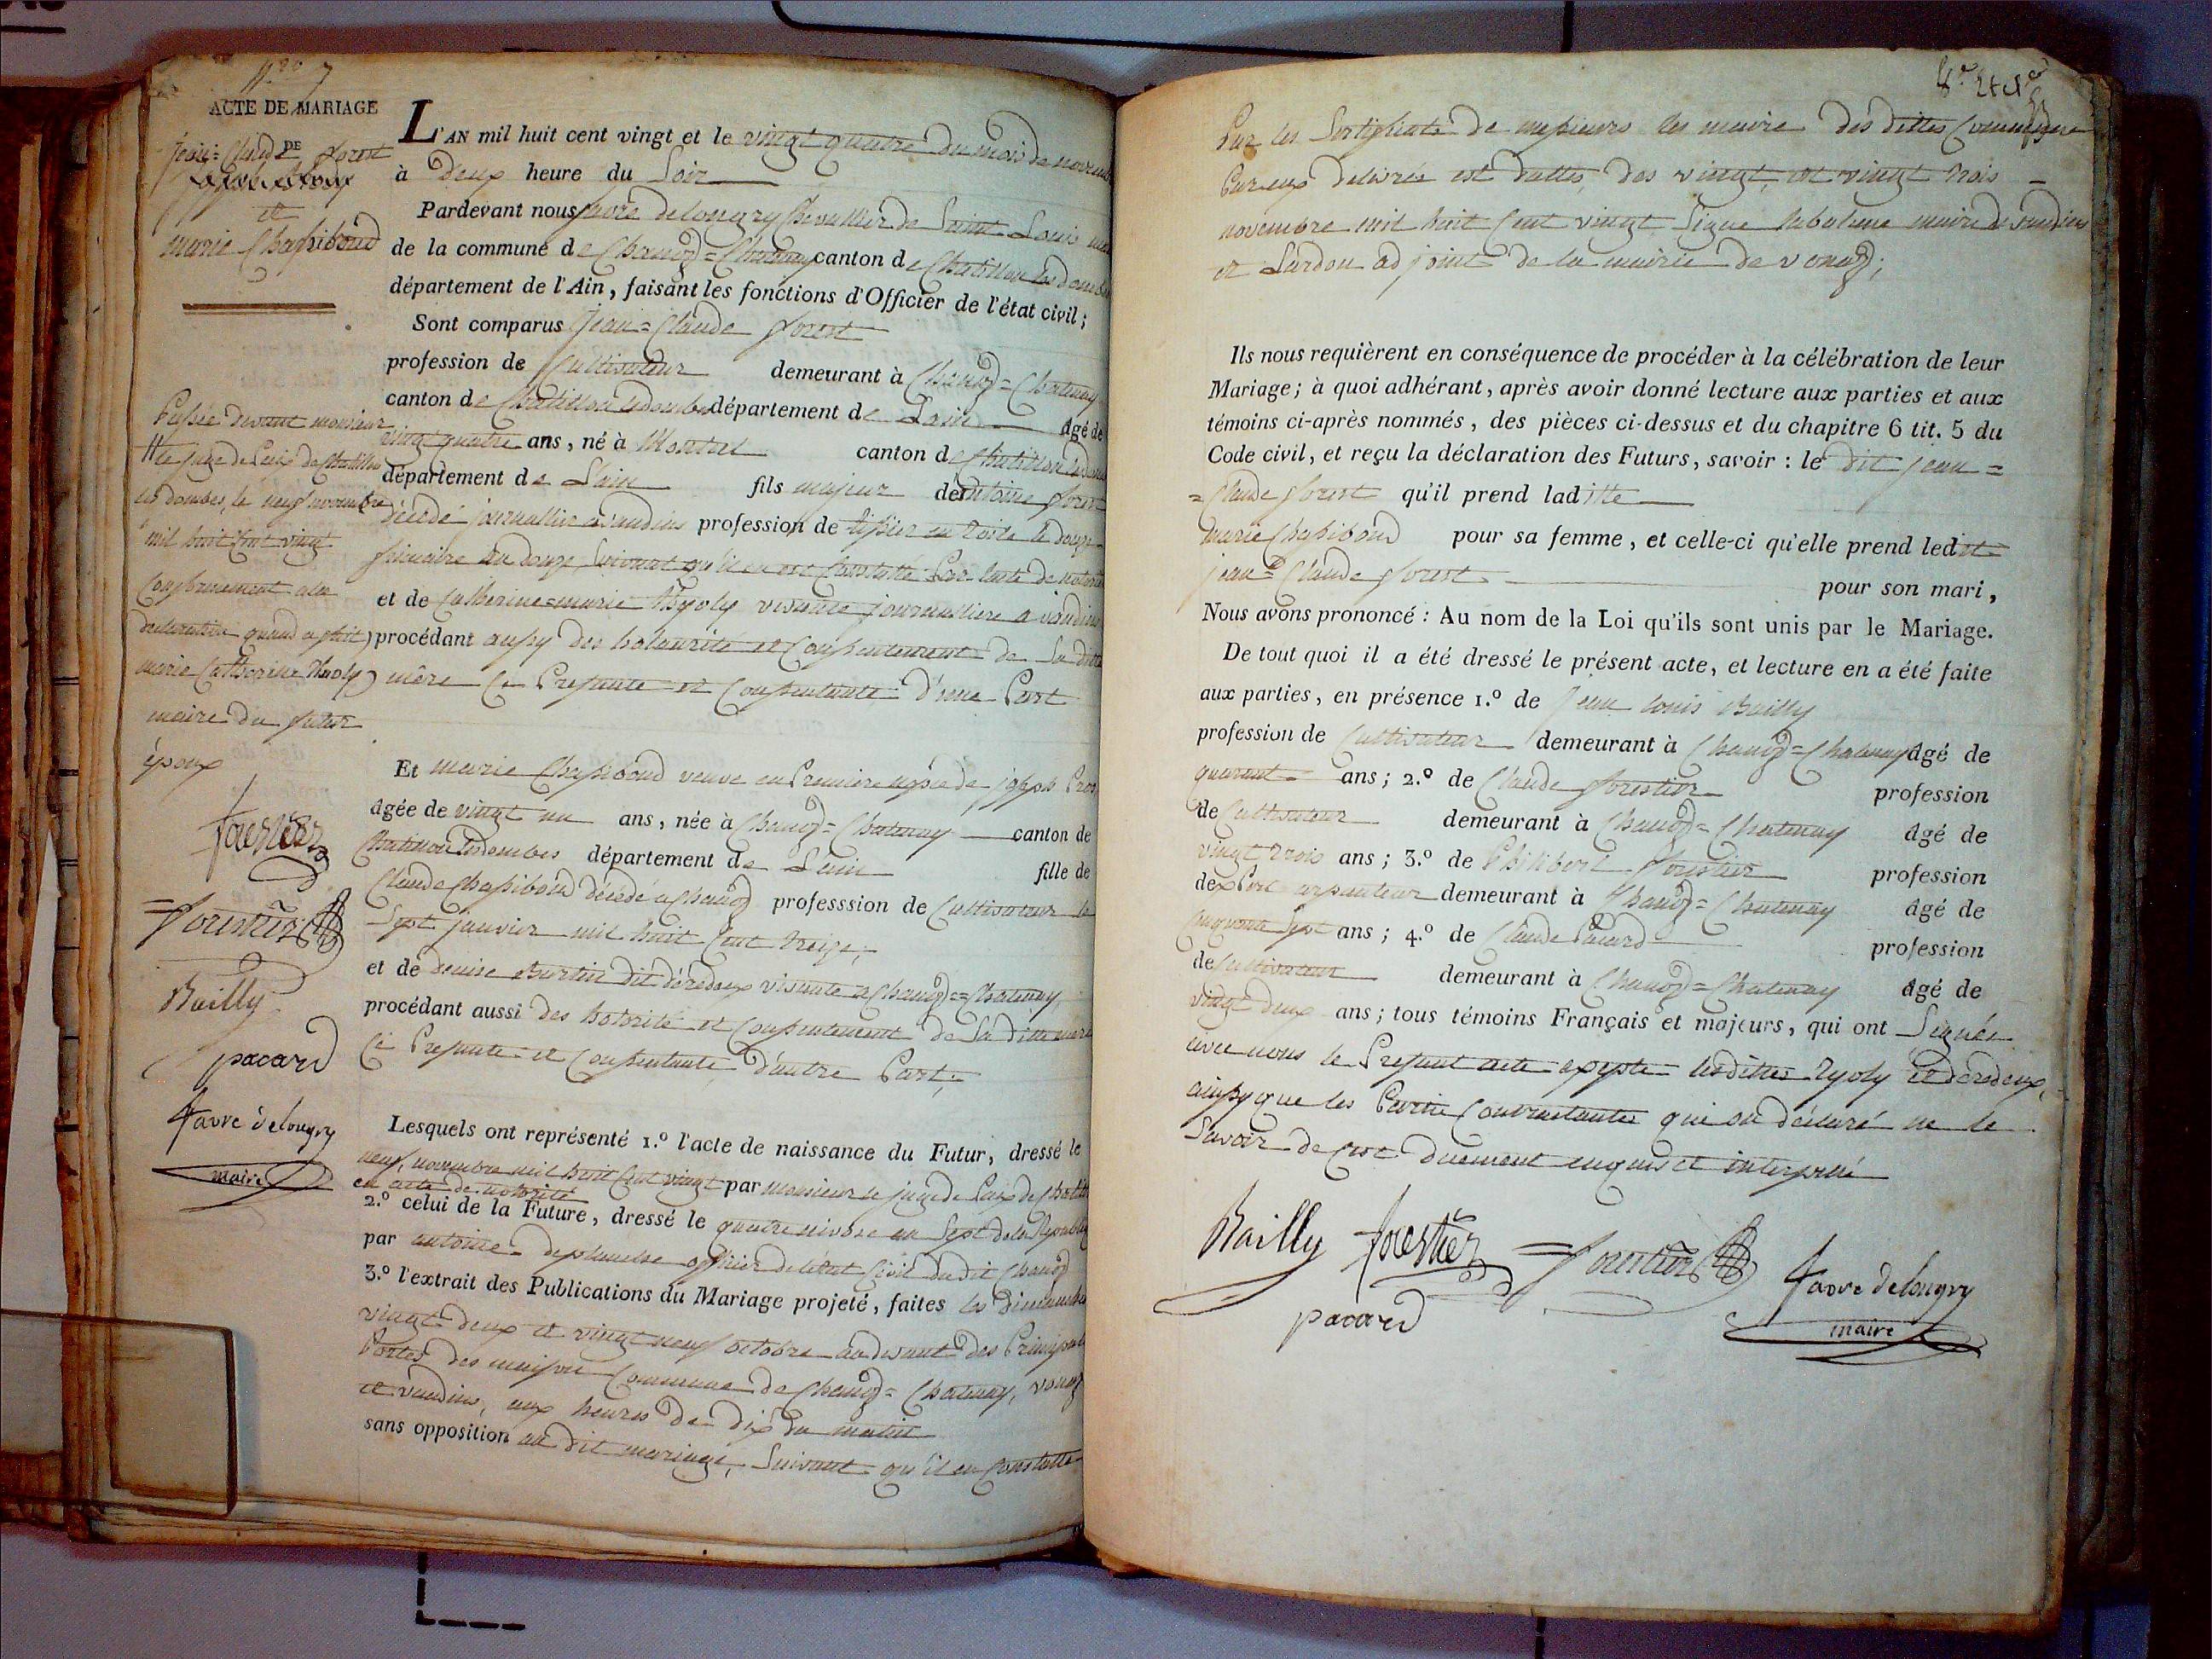 N.ro 7
ACTE DE MARIAGE
DE
jean=Claude forest
et
marie Chassiboud
Passée devant monsieur
le juge de Paix de Chatillon
les dombes, le neuf novembre
mil huit Cent vingt
Conformement a la
declaration quand a fait
marie Catherine
maire du futur
époux
forestier
=forestier
Bailly
pacard
favre delongry
maire
L'AN mil huit cent vingt et le vingt quatre du mois de novembre
à deux heure du Soir
Pardevant nous favre delongry Chevallier de Saint Louis
de la commune de Chanoz=Chatenay canton de Chatillon les dombes
département de l'Ain, faisant les fonctions d'Officier de l'état civil;
Sont comparus Jean=Claude forest
profession de Cultivateur demeurant à Chanoz=Chatenay
canton de Chatillon lesdombes département de Lain âgé de
vingt quatre ans, né à canton de Chatillon
département de L'ain fils majeur de antoine forest
décédé journallier a vandins profession de tissier en toile le douze
frimaire an douze Suivant qu'il en est Constatté Par lacte de notorité
et de Catherine=marie vivante journalliere a vandins
procédant aussy des hotaurité et Consentement de Sa ditte
mère Ci Presante et Consentante d'une Part
Et marie Chassiboud veuve en Premiere de joseph
âgée de vingt un ans, née à Chanoz=Chatenay canton de
Chatillon lesdombes département de L'ain fille de
Claude Chassiboud décédé a Chanoz professsion de Cultivateur le
Sept janvier mil huit Cent treize;
et de denise Burtin dit déredeux vivante a Chanoz=Chatenay
procédant aussi des hotorité et Consentement de Sa ditte mere
Ci Presante et Consentante d'autre Part;
Lesquels ont représenté 1.º l'acte de naissance du Futur, dressé le
neuf novembre mil huit Cent vingt par monsieur le juge de Paix de
en acte de notorité
2.º celui de la Future, dressé le quatre nivose an Sept de la
par antoine officier de létat Civil dudit Chanoz
3.º l'extrait des Publications du Mariage projeté, faites les dimanches
vingt deux et vingt neuf octobre au devant des
Portes des maison Commune de Chanoz=Chatenay, vonaz
et vandins, aux heures de dix du matin
sans opposition au dit mariage, Suivant qu'il en Constatte
Par les Sertificats de messieurs les maire des dittes Commune
Par eux delivrés est dattés des vingt, et vingt trois
novembre mil huit Cent vingt Signe maire de vandins
et Lardon adjoint de la mairie de vonaz;
Ils nous requièrent en conséquence de procéder à la célébration de leur
Mariage; à quoi adhérant, après avoir donné lecture aux parties et aux
témoins ci-après nommés, des pièces ci-dessus et du chapitre 6 tit. 5 du
Code civil, et reçu la déclaration des Futurs, savoir : le dit jean=
=Claude forest qu'il prend laditte
marie Chassiboud pour sa femme, et celle-ci qu'elle prend ledit
jean=Claude forest pour son mari,
Nous avons prononcé : Au nom de la Loi qu'ils sont unis par le Mariage.
De tout quoi il a été dressé le présent acte, et lecture en a été faite
aux parties, en présence 1.º de Jean louis Bailly
profession de Cultivateur demeurant à Chanoz=Chatenay âgé de
quarant ans; 2.º de Claude forestier profession
de Cultivateur demeurant à Chanoz=Chatenay âgé de
vingt trois ans; 3.º de Philibert forestier profession
dexPert arpanteur demeurant à Chanoz=Chatenay âgé de
Cinquante Sept ans; 4.º de Claude Pacard profession
de Cultivateur demeurant à Chanoz=Chatenay âgé de
vingt deux ans; tous témoins Français et majeurs, qui ont Signés
avec nous le Presant acte exepte lesdittes et déredeux,
ainsy que les Partie Contractantes qui on déclaré ne le
Savoir de Ce duement enquis et interpellé
Bailly forestier =forestier favre delongry
pacard maire